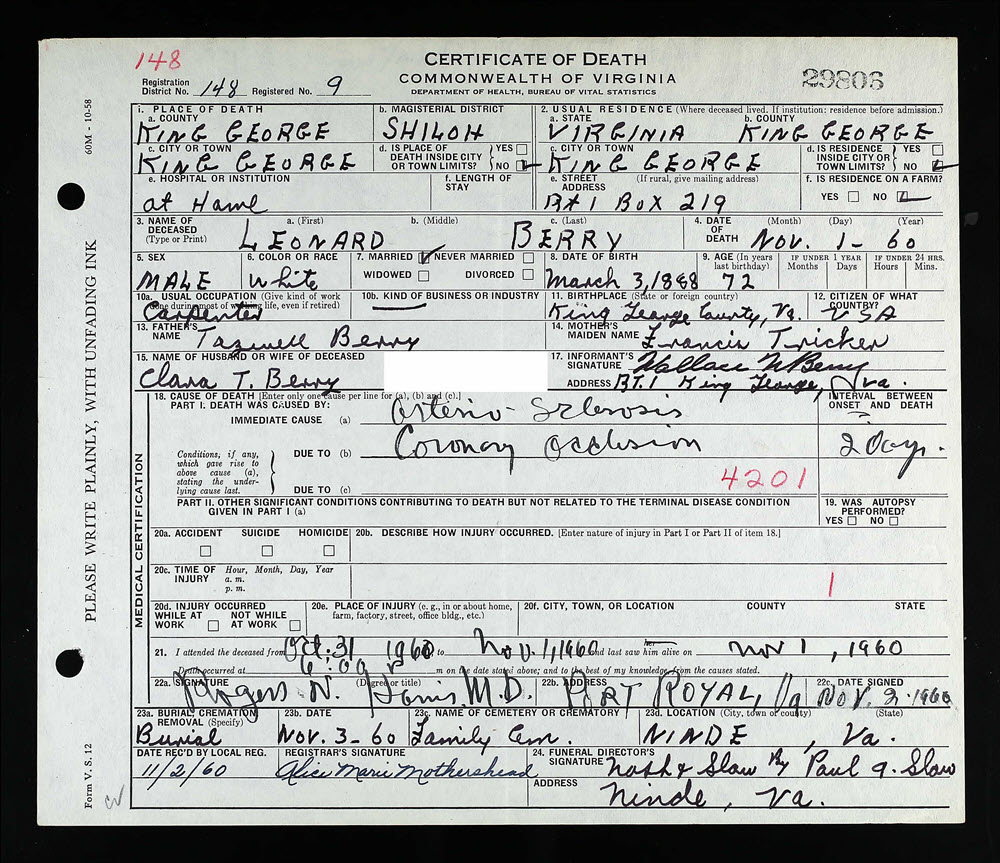 148
CERTIFICATE OF DEATH
COMMONWEALTH OF VIRGINIA
DEPARTMENT OF HEALTH, BUREAU OF VITAL STATISTICS
29806
Registration District No. 148 Registered No. 9
60M - 10-58
PLEASE WRITE PLAINLY, WITH UNFADING INK
Form V. S. 12
1. PLACE OF DEATH
a. COUNTY KING GEORGE
b. MAGISTERIAL DISTRICT SHILOH
2. USUAL RESIDENCE (Where deceased lived. If institution: residence before admission.)
a. STATE VIRGINIA
b. COUNTY KING GEORGE
c. CITY OR TOWN KING GEORGE
d. IS PLACE OF DEATH INSIDE CITY OR TOWN LIMITS? YES NO
c. CITY OR TOWN KING GEORGE
d. IS RESIDENCE INSIDE CITY OR TOWN LIMITS? YES NO
e. HOSPITAL OR INSTITUTION at Home
f. LENGTH OF STAY
e. STREET ADDRESS (If rural, give mailing address) Rt 1 Box 219
f. IS RESIDENCE ON A FARM? YES NO
3. NAME OF DECEASED (Type or Print)
a. (First) LEONARD
b. (Middle)
c. (Last) BERRY
4. DATE OF DEATH (Month) (Day) (Year) Nov. 1 - 60
5. SEX MALE
6. COLOR OR RACE White
7. MARRIED NEVER MARRIED WIDOWED DIVORCED
8. DATE OF BIRTH March 3, 1888
9. AGE (In years last birthday) 72
IF UNDER 1 YEAR Months Days
IF UNDER 24 HRS. Hours Mins.
10a. USUAL OCCUPATION (Give kind of work done during most of working life, even if retired) Carpenter
10b. KIND OF BUSINESS OR INDUSTRY
11. BIRTHPLACE (State or foreign country) King George County, Va.
12. CITIZEN OF WHAT COUNTRY? USA
13. FATHER'S NAME Tazwell Berry
14. MOTHER'S MAIDEN NAME Francis Tricker
15. NAME OF HUSBAND OR WIFE OF DECEASED Clara T. Berry
17. INFORMANT'S SIGNATURE Wallace N Berry
ADDRESS RT. 1 King George, Va.
MEDICAL CERTIFICATION
18. CAUSE OF DEATH [Enter only one cause per line for (a), (b) and (c).]
INTERVAL BETWEEN ONSET AND DEATH
PART I. DEATH WAS CAUSED BY:
IMMEDIATE CAUSE (a) Arterio-Sclerosis ?
Conditions, if any, which gave rise to above cause (a), stating the underlying cause last.
DUE TO (b) Coronary Occlusion 2 Days.
DUE TO (c)
4201
PART II. OTHER SIGNIFICANT CONDITIONS CONTRIBUTING TO DEATH BUT NOT RELATED TO THE TERMINAL DISEASE CONDITION GIVEN IN PART I (a)
19. WAS AUTOPSY PERFORMED? YES NO
20a. ACCIDENT SUICIDE HOMICIDE
20b. DESCRIBE HOW INJURY OCCURRED. [Enter nature of injury in Part I or Part II of item 18.]
20c. TIME OF INJURY Hour, Month, Day, Year a. m. p. m.
1
20d. INJURY OCCURRED WHILE AT WORK NOT WHILE AT WORK
20e. PLACE OF INJURY (e. g., in or about home, farm, factory, street, office bldg., etc.)
20f. CITY, TOWN, OR LOCATION COUNTY STATE
21. I attended the deceased from Oct. 31 1960 to Nov. 1, 1960 and last saw him alive on Nov 1, 1960
Death occurred at 6:00 P m on the date stated above; and to the best of my knowledge, from the causes stated.
22a. SIGNATURE (Degree or title) Rogers N. Harris, M.D.
22b. ADDRESS PORT ROYAL, Va
22c. DATE SIGNED NOV. 2 1960
23a. BURIAL, CREMATION, REMOVAL (Specify) Burial
23b. DATE NOV. 3-60
23c. NAME OF CEMETERY OR CREMATORY Family Cem.
23d. LOCATION (City, town or county) (State) NINDE, Va.
DATE REC'D BY LOCAL REG. 11/2/60
REGISTRAR'S SIGNATURE Alice Marie Mothershead
24. FUNERAL DIRECTOR'S SIGNATURE Nash & Slaw By Paul A. Slaw
ADDRESS Ninde, Va.